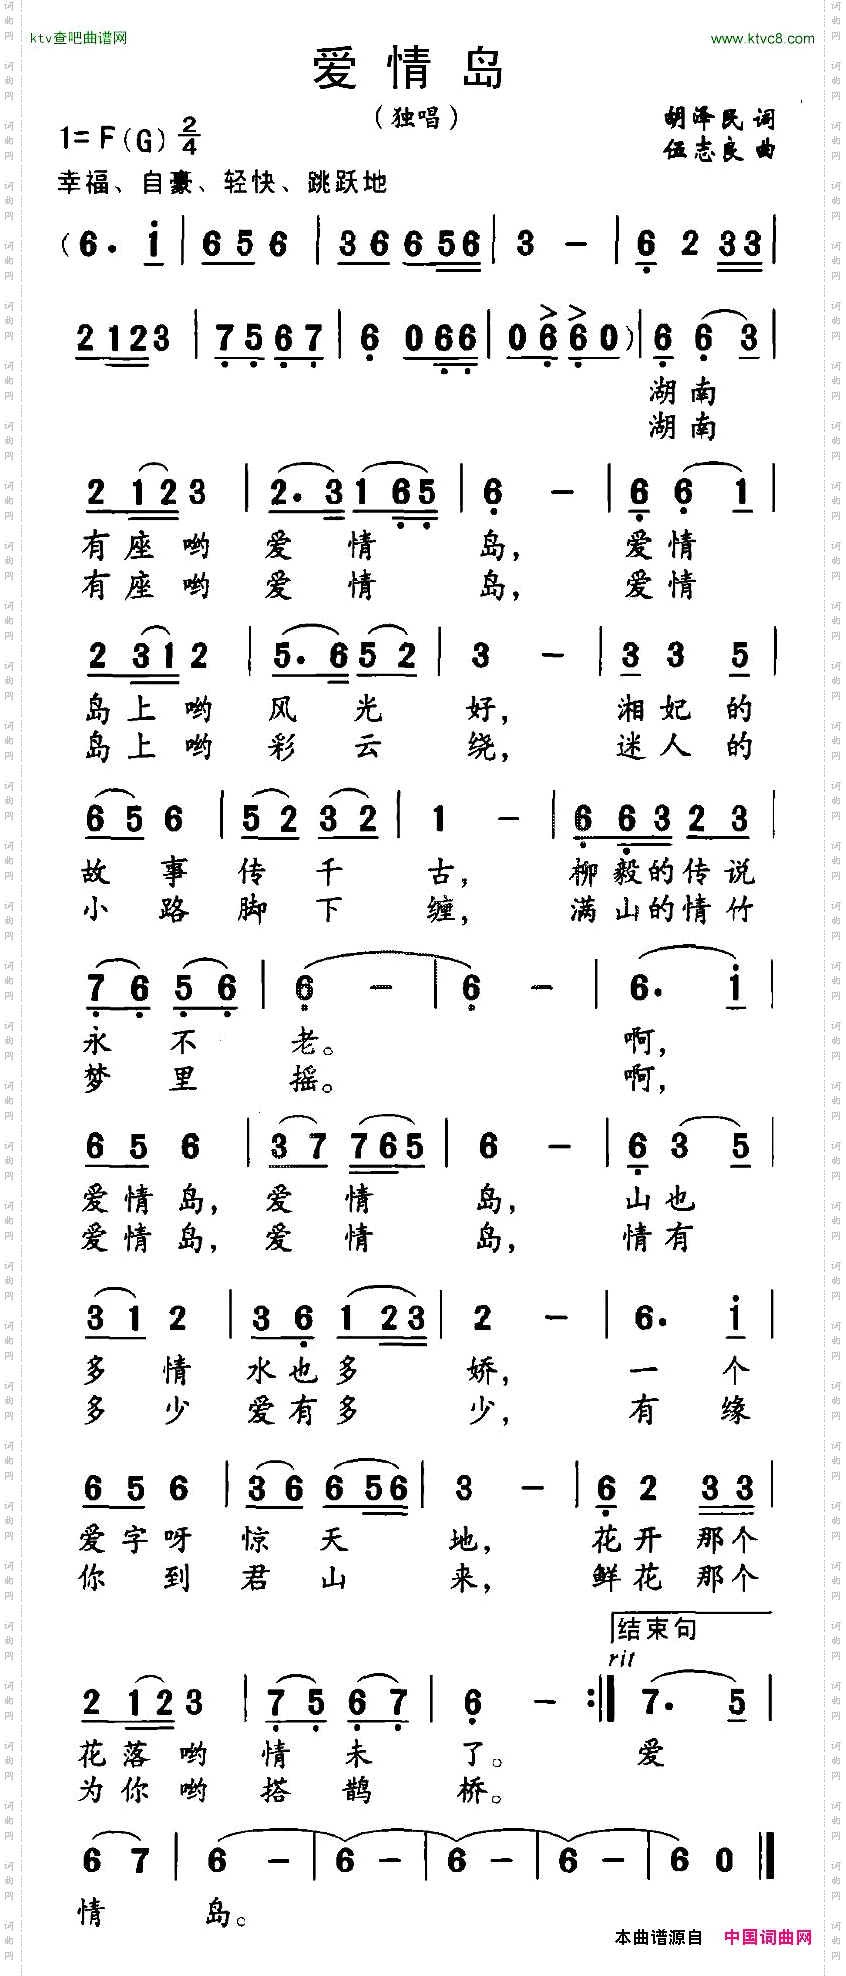 ktv查吧曲谱网
www.ktvc8.com
爱情岛
（独唱）
1=F(G) 2/4
胡泽民 词
伍志良 曲
幸福、自豪、轻快、跳跃地
（6· i | 6 5 6 | 3 6 6 5 6 | 3 － | 6 2 3 3 |
2 1 2 3 | 7 5 6 7 | 6 0 6 6 | 0 6 6 0）| 6 6 3 |
湖南
湖南
2 1 2 3 | 2· 3 1 6 5 | 6 － | 6 6 1 |
有座哟 爱情岛， 爱情
有座哟 爱情岛， 爱情
2 3 1 2 | 5· 6 5 2 | 3 － | 3 3 5 |
岛上哟 风光好， 湘妃的
岛上哟 彩云绕， 迷人的
6 5 6 | 5 2 3 2 | 1 － | 6 6 3 2 3 |
故事传千古， 柳毅的传说
小路脚下缠， 满山的情竹
7 6 5 6 | 6 － | 6 － | 6· i |
永不老。 啊，
梦里摇。 啊，
6 5 6 | 3 7 7 6 5 | 6 － | 6 3 5 |
爱情岛， 爱情岛， 山也
爱情岛， 爱情岛， 情有
3 1 2 | 3 6 1 2 3 | 2 － | 6· i |
多情水也多娇， 一个
多少爱有多少， 有缘
6 5 6 | 3 6 6 5 6 | 3 － | 6 2 3 3 |
爱字呀惊天地， 花开那个
你到君山来， 鲜花那个
结束句
rit
2 1 2 3 | 7 5 6 7 | 6 － :‖ 7· 5 |
花落哟情未了。 爱
为你哟搭鹊桥。
6 7 | 6 － | 6 － | 6 － | 6 － | 6 0 ‖
情岛。
本曲谱源自 中国词曲网
词曲网